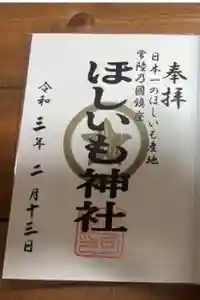 奉拝
日本一のほしいも産地
常陸乃國鎮座
ほしいも神社
令和三年二月十三日